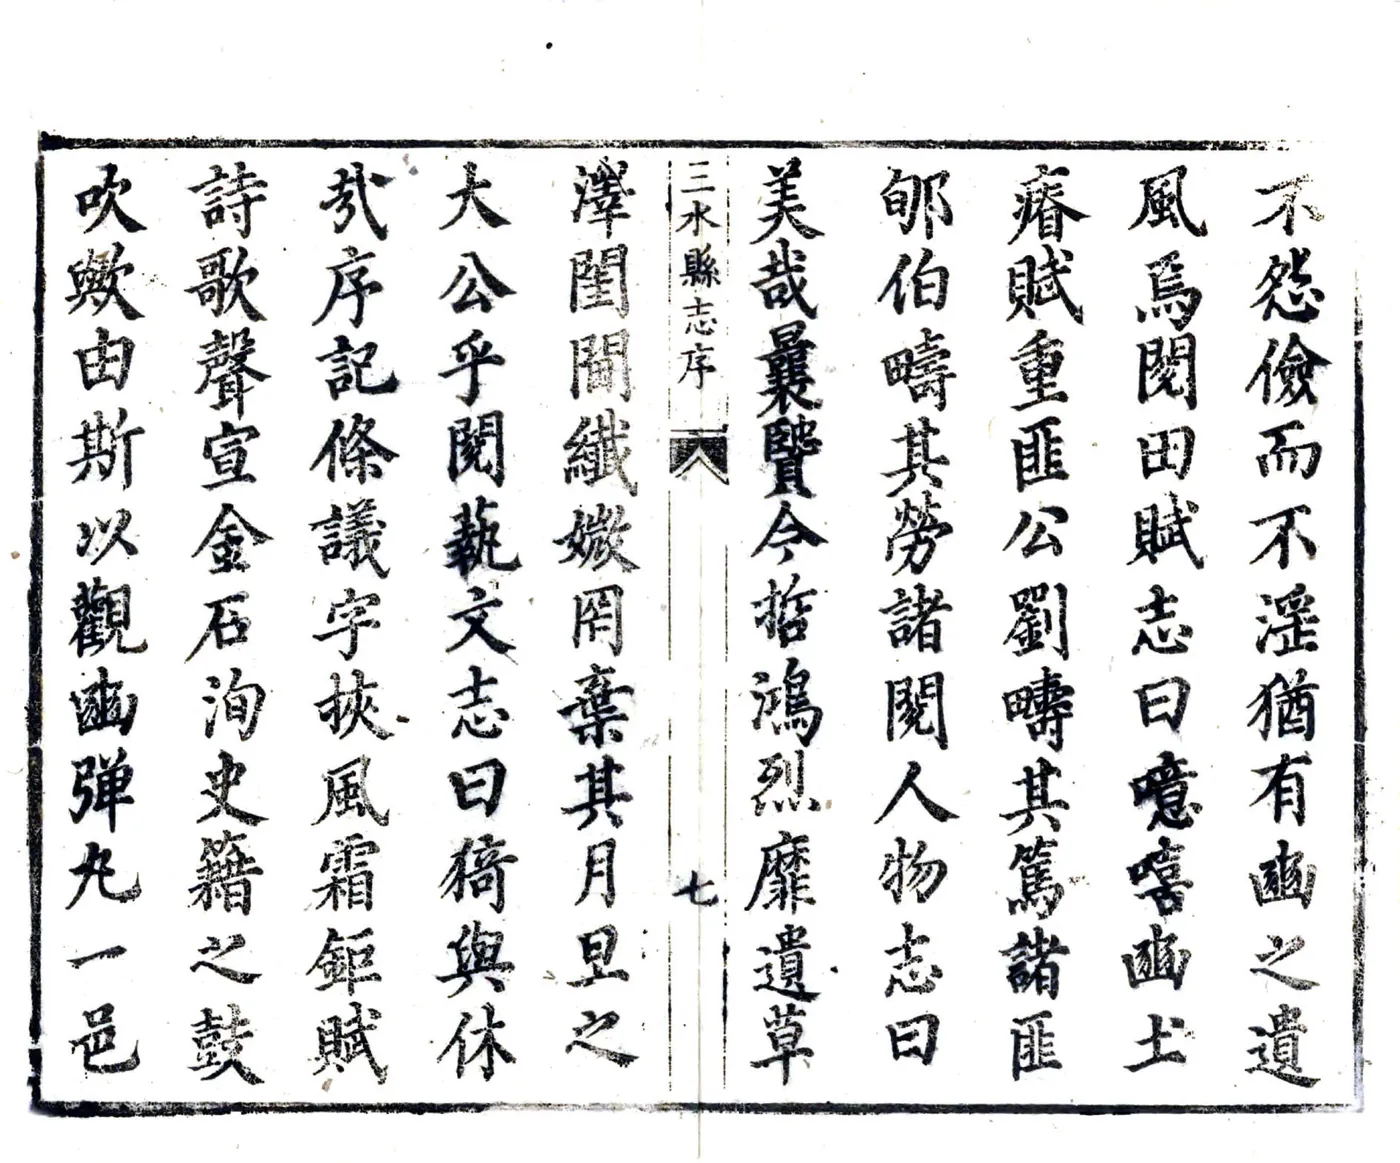 不怨儉而不淫猶有豳之遺
風焉閱田賦志曰噫嘻豳土
瘠賦重匪公劉疇其篤諸匪
郇伯疇其勞諸閱人物志曰
美哉曩賢今哲鴻烈靡遺草
三水縣志序
七
澤閨閤纖媺罔棄其月旦之
大公乎閱藝文志曰猗與休
哉序記條議字挾風霜鉅賦
詩歌聲宣金石洵史籍之鼓
吹歟由斯以觀豳彈丸一邑